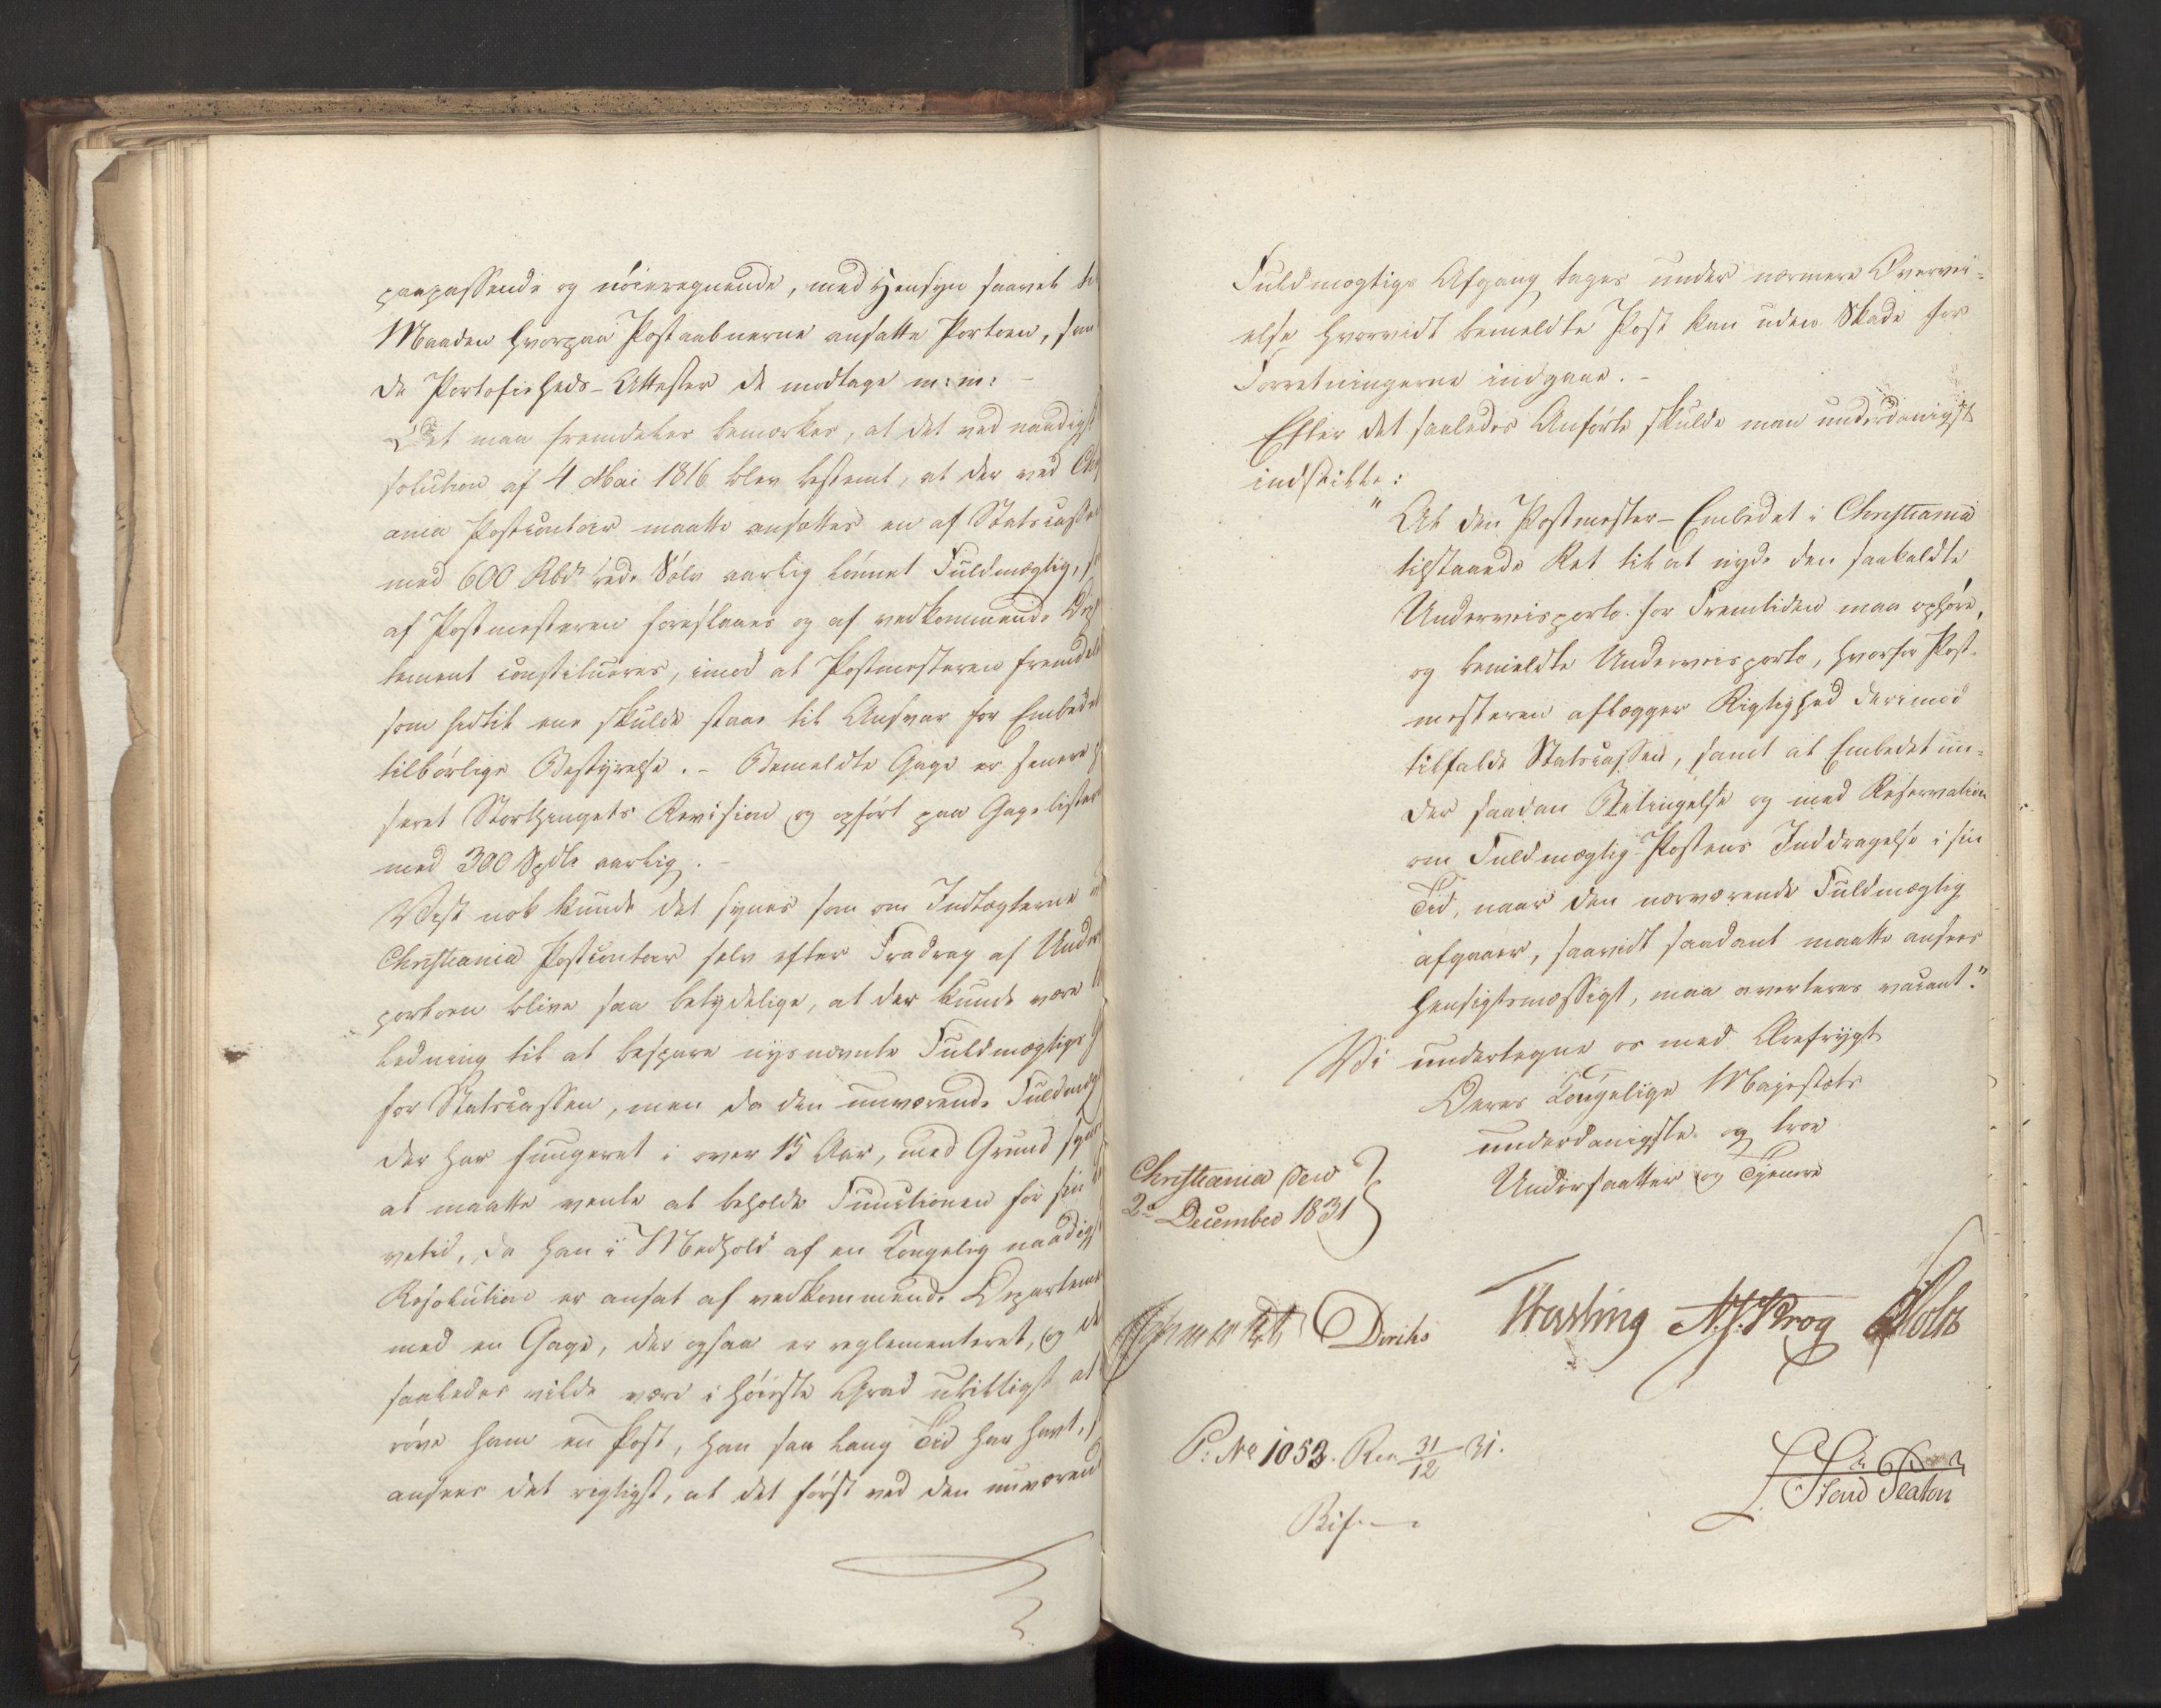 paapassende og nöieregnende, med Hensyn saavel til
Maaden hvorpaa Postaabnerne ansatte Portoen, som
de Portofriheds-Attester de modtage m: m: -
Det maa fremdeles bemærkes, at det ved naadigst
solution af 4 Mai 1816 blev bestemt, at der ved Chri
ania Postcontoir maatte ansættes en af Statscassen
med 600 Rbdr rede Sölv aarlig lönnet Fuldmægtig, s
af Postmesteren foreslaaes og af vedkommende Dep
tement constitueres, imod at Postmesteren fremdeles
som hidtil ene skulde staae til Ansvar for Embedet
tilbörlige Bestyrelse. - Bemeldte Gage er senere
seret Storthingets Revision og opfört paa Gagelisten
med 300 Spdlr aarlig. -
Vist nok kunde det synes som om Indtægterne
Christiania Postcontoir selv efter Fradrag af Under
portoen blive saa betydelige, at der kunde være
ledning til at bespare nysnævnte Fuldmægtigs
for Statscassen, men da den nuværende Fuldmæg
der har fungeret i over 15 Aar, med Grund synes
at maatte vente at beholde Functionen for sin
vetid, da han i Medhold af en Kongelig naadigst
Resolution er ansat af vedkommende Departement
med en Gage, der ogsaa er reglementeret, og det
saaledes vilde være i höieste Grad ubilligt at
röve ham en Post, han saa lang Tid har havt,
ansees det rigtigst, at det först ved den nuværende
Fuldmægtigs Afgang tages under nærmere Overvei=
else hvorvidt bemeldte Post kan uden Skade for
Forretningerne indgaae. -
Efter det saaledes Anförte skulde man underdanigst
indstille:
"At den Postmester-Embedet i Christiania
tilstaaede Ret til at nyde den saakaldte
Underveisporto for Fremtiden maa ophöre,
og bemeldte Underveisporto, hvorfor Post-
mesteren aflægger Rigtighed derimod
tilfalde Statscassen, samt at Embedet un=
der saadan Betingelse og med Reservation
om Fuldmægtig-Postens Inddragelse i sin
Tid, naar den nærværende Fuldmægtig
afgaaer, saavidt saadant maatte ansees
hensigtsmæssigt, maa averteres vacant."
Vi undertegne os med Ærefrygt
Deres Kongelige Majestæts
underdanigste og troe
Undersaatter og Tjenere
Christiania den
2n December 1831
Diriks Fasting N. J. Krog Holst
P: No 1053. Res. 31/12 31.
Bif.